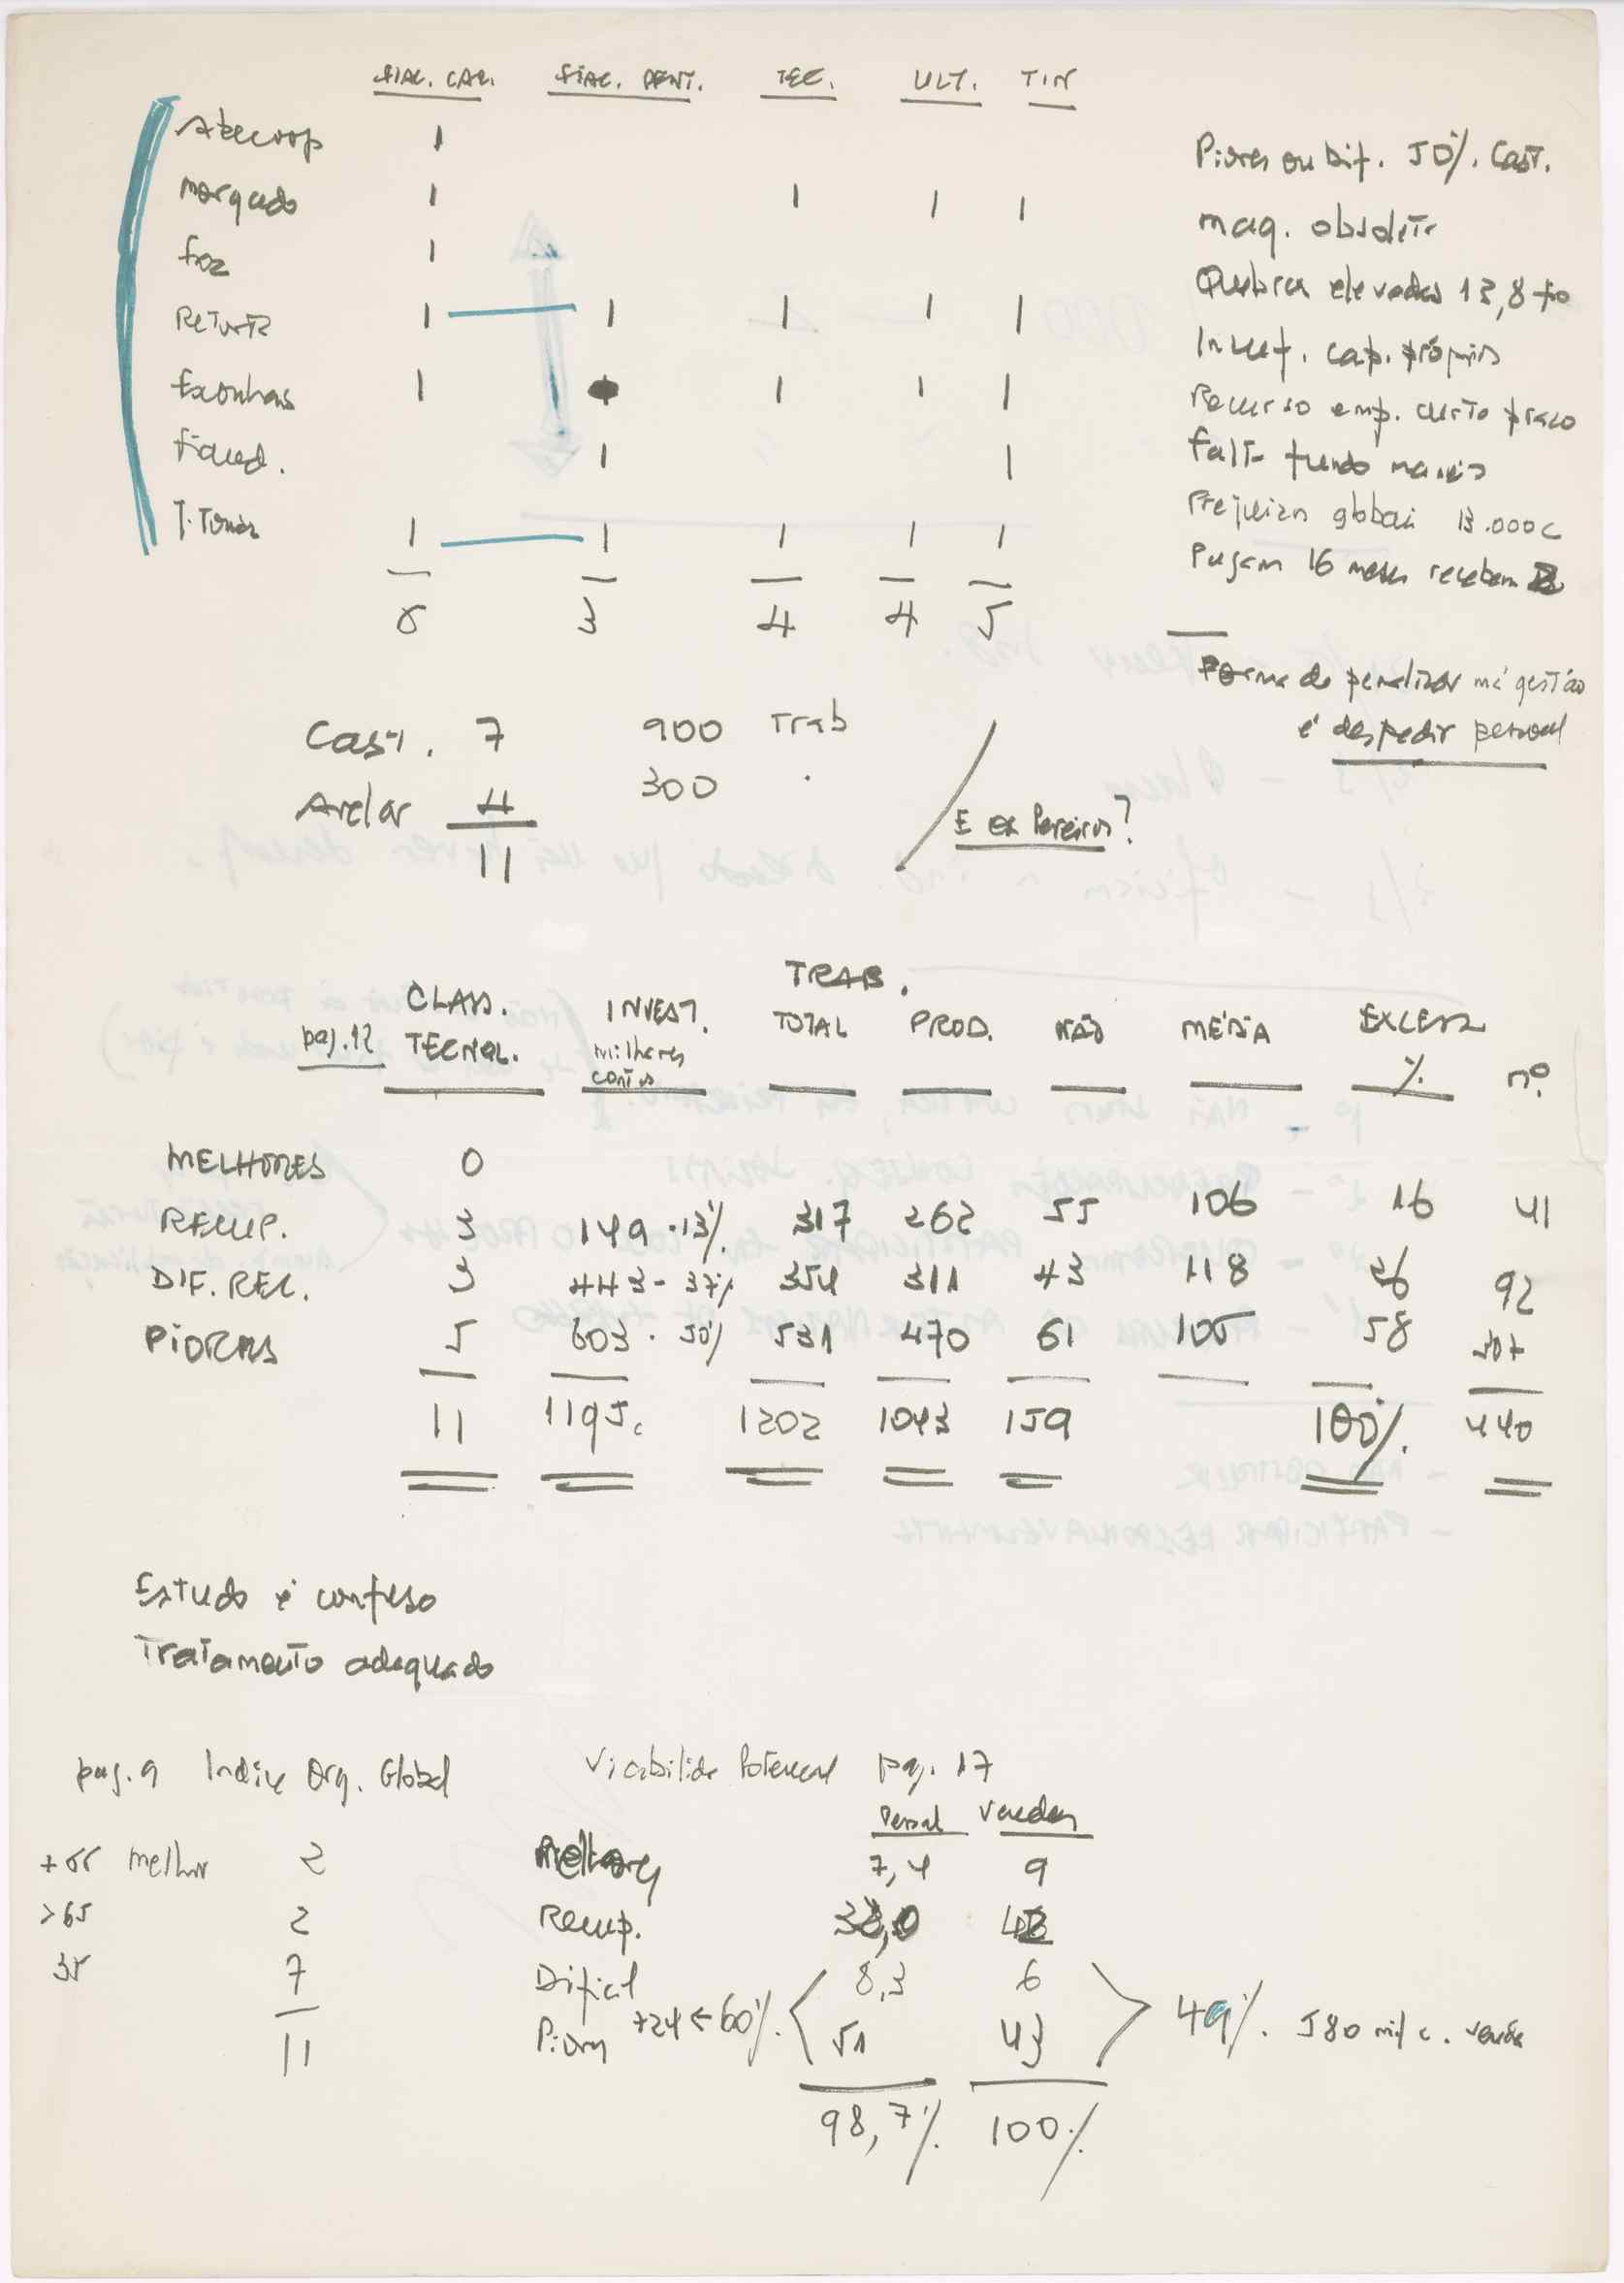 FIAÇ. CAR. FIAÇ. PENT. TEC. ULT. TIN
Abecoop 1
Morgado 1 1 1 1
Foz 1
Returfa 1 1 1 1 1
Fronhas 1 1 1 1
Fiaud. 1 1
J. Tomás 1 1 1 1 1
6 3 4 4 5
Piores ou Dif. 50%. Cast.
Maq. obsoleta
Quebras elevadas 13,8 fio
Invest. cap. próprios
Recurso emp. curto prazo
Falta fundo maneio
Prejuizos globais 13.000c
Pagam 16 meses recebem
Forma de penalizar má gestão
é despedir pessoal
Cast. 7 900 Trab
Avelar 4 300 "
11
E os Pereiros?
TRAB.
CLASS. INVEST. TOTAL PROD. NÃO MÉDIA EXCESSO
pag. 12 TECNOL. milhares contos % nº
MELHORES 0
RECUP. 3 149 · 13% 317 262 55 106 16 41
DIF. REC. 3 443 - 37% 354 311 43 118 26 92
PIORES 5 603 · 50% 531 470 61 105 58 307
11 1195c 1202 1043 159 100%. 440
Estudo é confuso
Tratamento adequado
pag. 9 Indice Org. Global
+65 melhor 2
>65 2
35 7
11
Viabilidade Potencial pag. 17
Pessoal Vendas
Melhores 7,4 9
Recup. 42
Dificil 8,3 6
Piores 724 ← 60%. 51 43 49%. 580 mil c. vendas
98,7% 100%